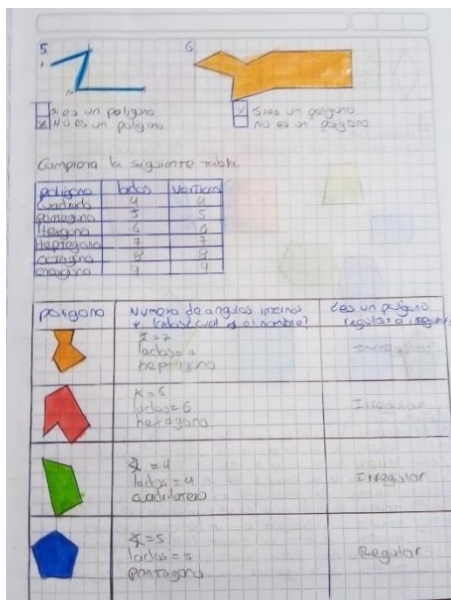 5.
6.
Si es un poligono
x No es un poligono
x Si es un poligono
no es un poligono
Completa la siguiente tabla
poligono lados vertices
cuadrado 4 4
pentagono 5 5
Hexagono 6 6
Heptagono 7 7
octagono 8 8
eneagono 9 9
poligono
Numero de angulos internos
y lados ¿cual es el nombre?
¿es un poligono
regular o irregular
∡=7
lados=7
heptagono
Irregular
∡=6
lados=6
hexagono
Irregular
∡=4
lados=4
cuadrilatero
Irregular
∡=5
lados=5
pentagono
Regular